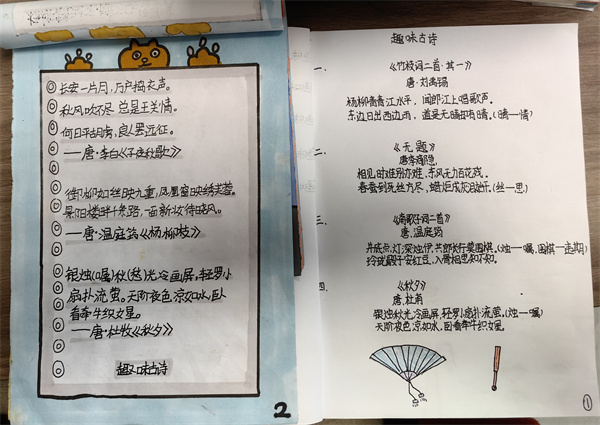 长安一片月，万户捣衣声。
秋风吹不尽，总是玉关情。
何日平胡虏，良人罢远征。
——唐·李白《子夜秋歌》
御柳如丝映九重，凤凰窗映绣芙蓉。
景阳楼畔千条路，一面新妆待晓风。
——唐·温庭筠《杨柳枝》
银烛(嘱)秋(愁)光冷画屏，轻罗小
扇扑流萤。天阶夜色凉如水，卧
看牵牛织女星。
——唐·杜牧《秋夕》
趣味古诗
2
趣味古诗
一、
《竹枝词二首·其一》
唐·刘禹锡
杨柳青青江水平，闻郎江上唱歌声。
东边日出西边雨，道是无晴却有晴。(晴—情)
二、
《无题》
唐李商隐
相见时难别亦难，东风无力百花残。
春蚕到死丝方尽，蜡炬成灰泪始干。(丝—思)
三、
《南歌子词二首》
唐.温庭筠
井底点灯深烛伊，共郎长行莫围棋。(烛—嘱，围棋—违期)
玲珑骰子安红豆，入骨相思知不知。
四、
《秋夕》
唐.杜牧
银烛秋光冷画屏，轻罗小扇扑流萤。(烛—嘱)
天阶夜色凉如水，卧看牵牛织女星。
①